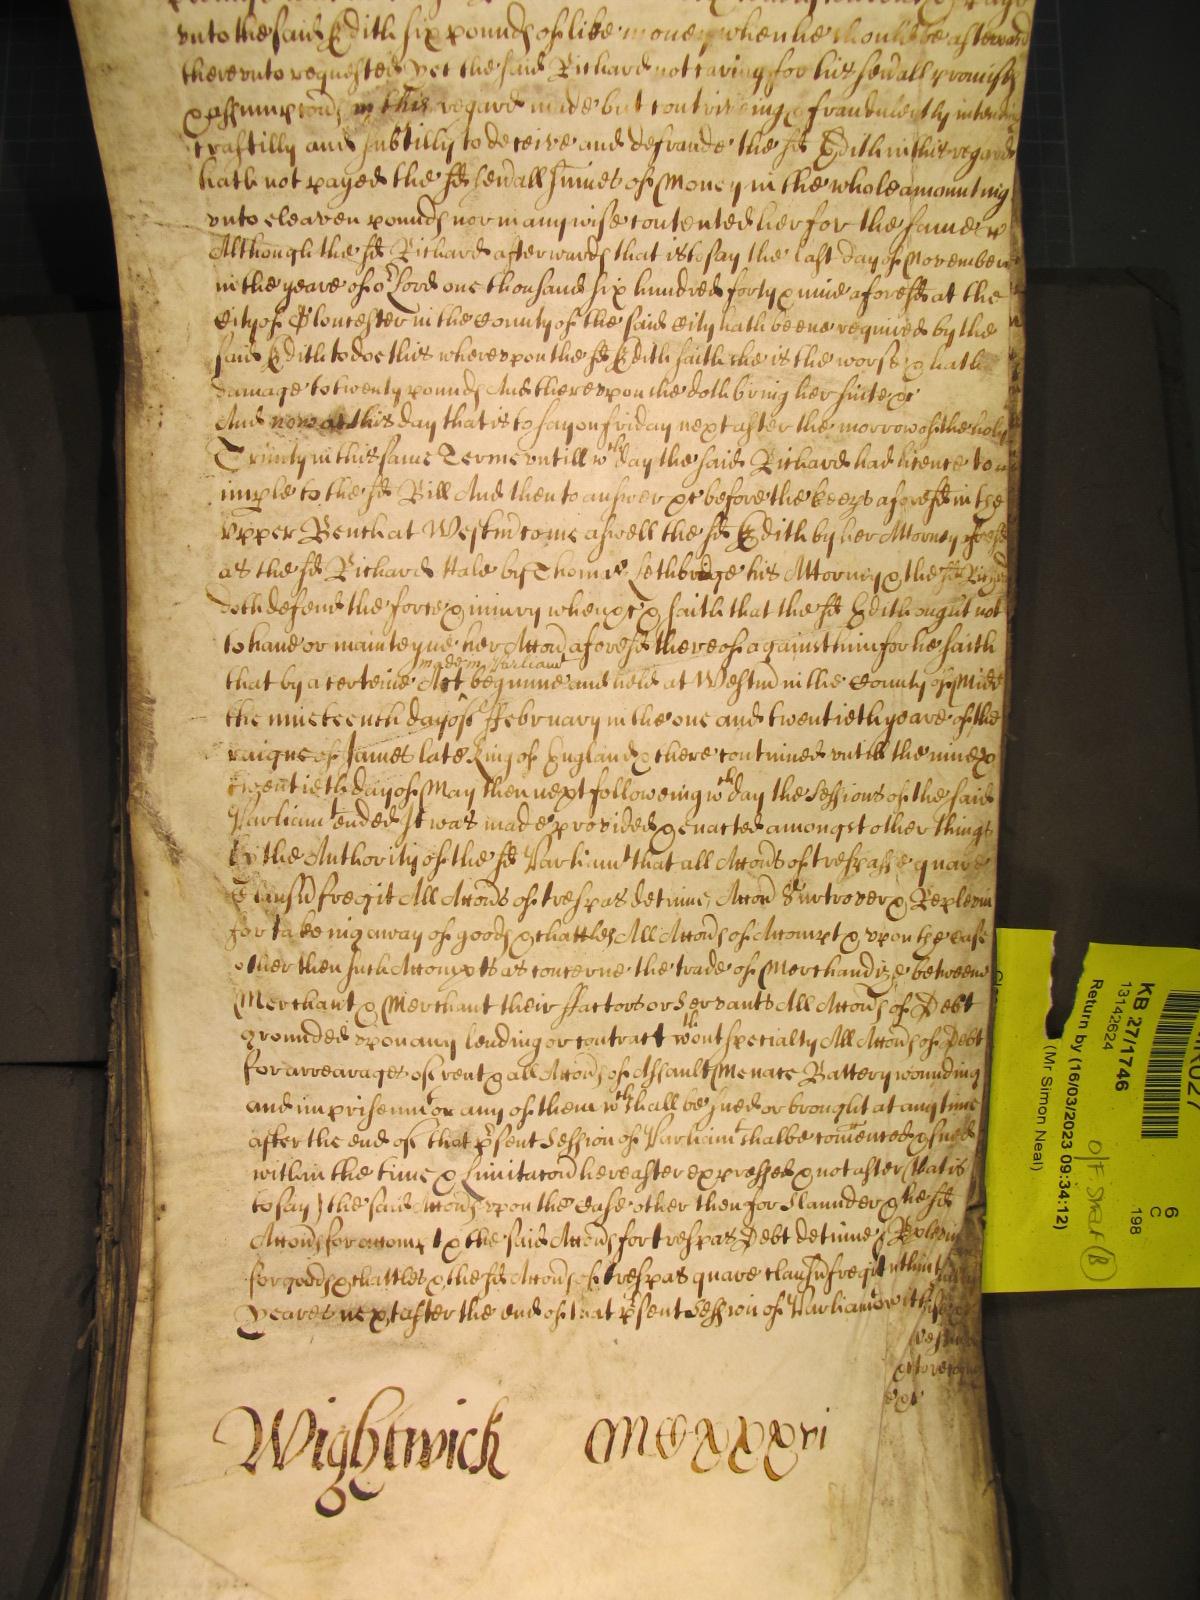 vnto the said Edith six pounds of like money when he should be afterward
therevnto requested yet the said Richard not caring for his seuall promises
& assumpcons in this regard made but contriveing & fraudulently intending
craftilly and subtilly to deceive and defraude the sd Edith in this regard
hath not payed the sd seuall summes of Money in the whole amounting
vnto eleaven pounds nor in any wise contented her for the same
Although the sd Richard afterwards that is to say the last day of November
in the yeare of or Lord one thousand six hundred forty & nine aforesd at the
City of Gloucester in the County of the said City hath beene required by the
said Edith to doe this wherevpon the sd Edith saith she is the worse & hath
damage to twenty pounds And therevpon she doth bring her suite &c
And now at this day that is to say on friday next after the morrow of the holy
Trinity in this same Terme vntill wch day the said Richard had licence to
imple to the sd Bill And then to answer &c before the keeps aforesd in the
vpper Bench at Westm come aswell the sd Edith by her Attorney aforesd
as the sd Richard Hale by Thomas Lethbridge his Attorney & the sd Richard
doth defend the force & iniury when &c & saith that the sd Edith ought not
to have or mainteyne her Accon aforesd thereof against him for he saith
made in Parliamt
that by a certeine Act begunne and held at Westm in the County of Midd
the nineteenth day of ffebruary in the one and twentieth yeare of the
raigne of James late King of England & there continued vntill the nine &
twentieth day of May then next following wch day the Sessions of the said
Parliamt ended It was made provided & enacted amongst other things
by the Authority of the sd Parliamt that all Accons of trespasse quare
Clausu fregit All Accons of trespas detinue, Accon Sur trover & Replevin
for takeing away of goods & chattles All Accons of Accompt & vpon the case
other then such Accompts as concerne the trade of Merchandize betweene
Merchant & Merchant their ffactors or Servants All Accons of Debt
grounded vpon any lending or contract wthout specialty All Accons of Debt
for arrearages of rent & all Accons of Assault Menace Battery wounding
and imprisonmt or any of them wch shall be sued or brought at any time
after the end of that psent Session of Parliamt shalbe comenced & sued
within the time & Limitacon hereafter expressed & not after (that is
to say) the said Accons vpon the case other then for Slaunder & the sd
Accons for accompt & the said Accons for trespas Debt detinue & Replevin
for goods & chattles & the sd Accons of trespas quare clausu fregit within
yeares next after the end of that psent Session of Parliamt or within
Wightwick MCXXXVI
KB 27/1746
13142624
Return by (16/03/2023 09:34:12)
(Mr Simon Neal)
6
C
198
O/F Shelf B